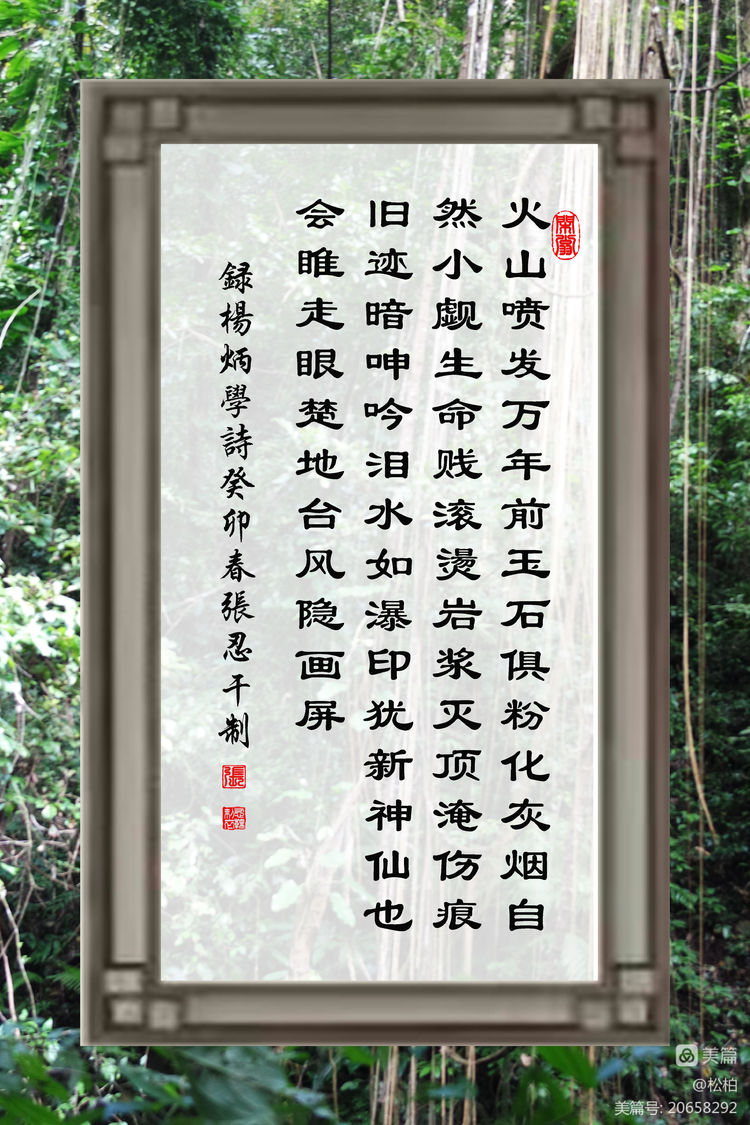 火山喷发万年前玉石俱粉化灰烟自
然小觑生命贱滚燙岩浆灭顶淹伤痕
旧迹暗呻吟泪水如瀑印犹新神仙也
会睢走眼楚地台风隐画屏
録楊炳學詩癸卯春張忍干制
張
美篇
@松柏
美篇号: 20658292